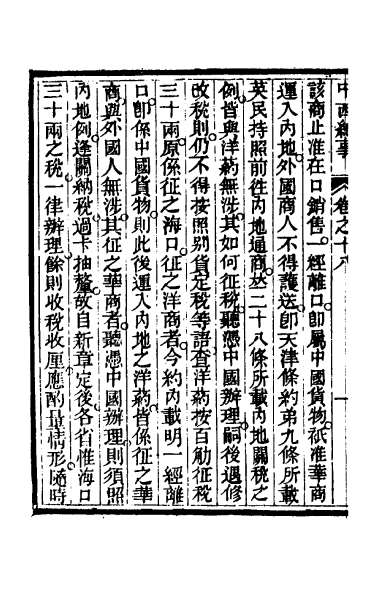 中西紀事 卷之十八 一
該商止准在口銷售一經離口卽屬中國貨物祇准華商
運入內地外國商人不得護送卽天津條約第九條所載
英民持照前往內地通商並二十八條所載內地關稅之
例皆與洋葯無涉其如何征稅聽憑中國辦理嗣後遇修
改稅則仍不得按照別貨定稅等語查洋葯按百觔征稅
三十兩原係征之海口征之洋商者今約內載明一經離
口卽係中國貨物則此後運入內地之洋葯皆係征之華
商與外國人無涉其征之華商者聽憑中國辦理則須照
內地例逢關納稅過卡抽釐故自新章定後各省惟海口
三十兩之稅一律辦理餘則收稅收厘應酌量情形隨時